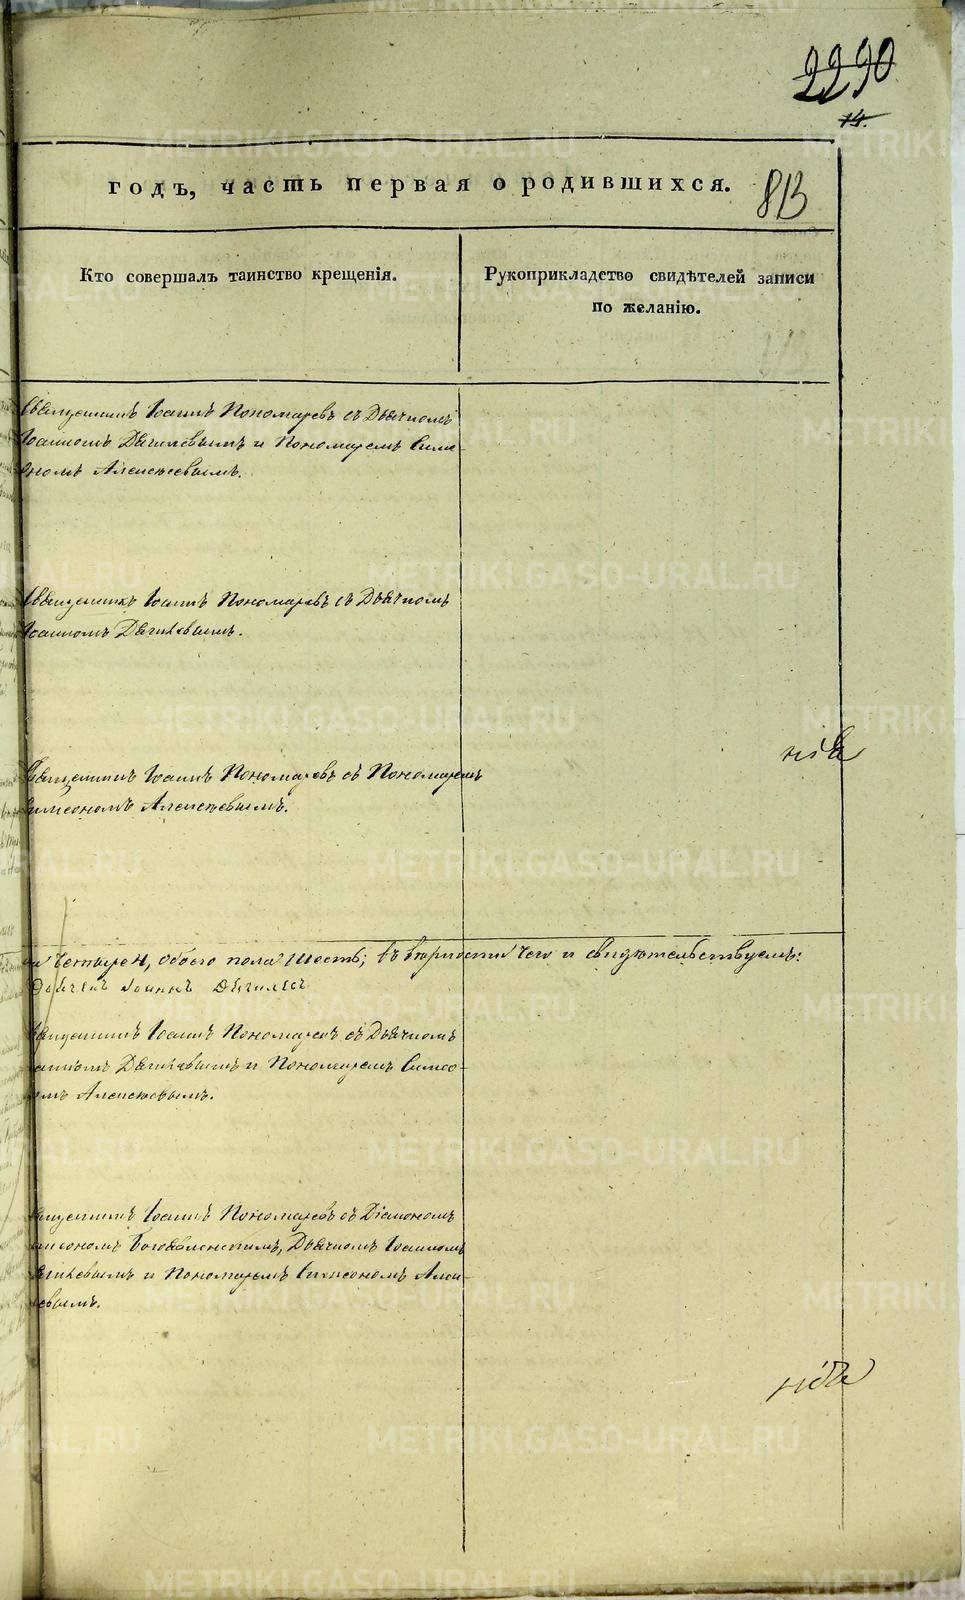 2290
14.
годъ, часть первая о родившихся.
813
Кто совершалъ таинство крещенія.
Рукоприкладство свидѣтелей записи
по желанію.
Священникъ Іоаннъ Пономаревъ съ Дьячкомъ
Іоанномъ Дягилевымъ и Пономаремъ Симе-
ономъ Алексѣевымъ.
Священникъ Іоаннъ Пономаревъ съ Дьячкомъ
Іоанномъ Дягилевымъ.
Священникъ Іоаннъ Пономаревъ съ Пономаремъ
Симеономъ Алексѣевымъ.
четыре, обоего пола шесть; въ вѣрности чего и свидѣтельствуемъ:
Дьячекъ Іоаннъ Дягилевъ
Священникъ Іоаннъ Пономаревъ съ Дьячкомъ
Іоанномъ Дягилевымъ и Пономаремъ Симео-
номъ Алексѣевымъ.
Священникъ Іоаннъ Пономаревъ съ Діакономъ
Богоявленскимъ, Дьячкомъ Іоанномъ
Дягилевымъ и Пономаремъ Симеономъ Алек-
сѣевымъ.
METRIKI.GASO-URAL.RU